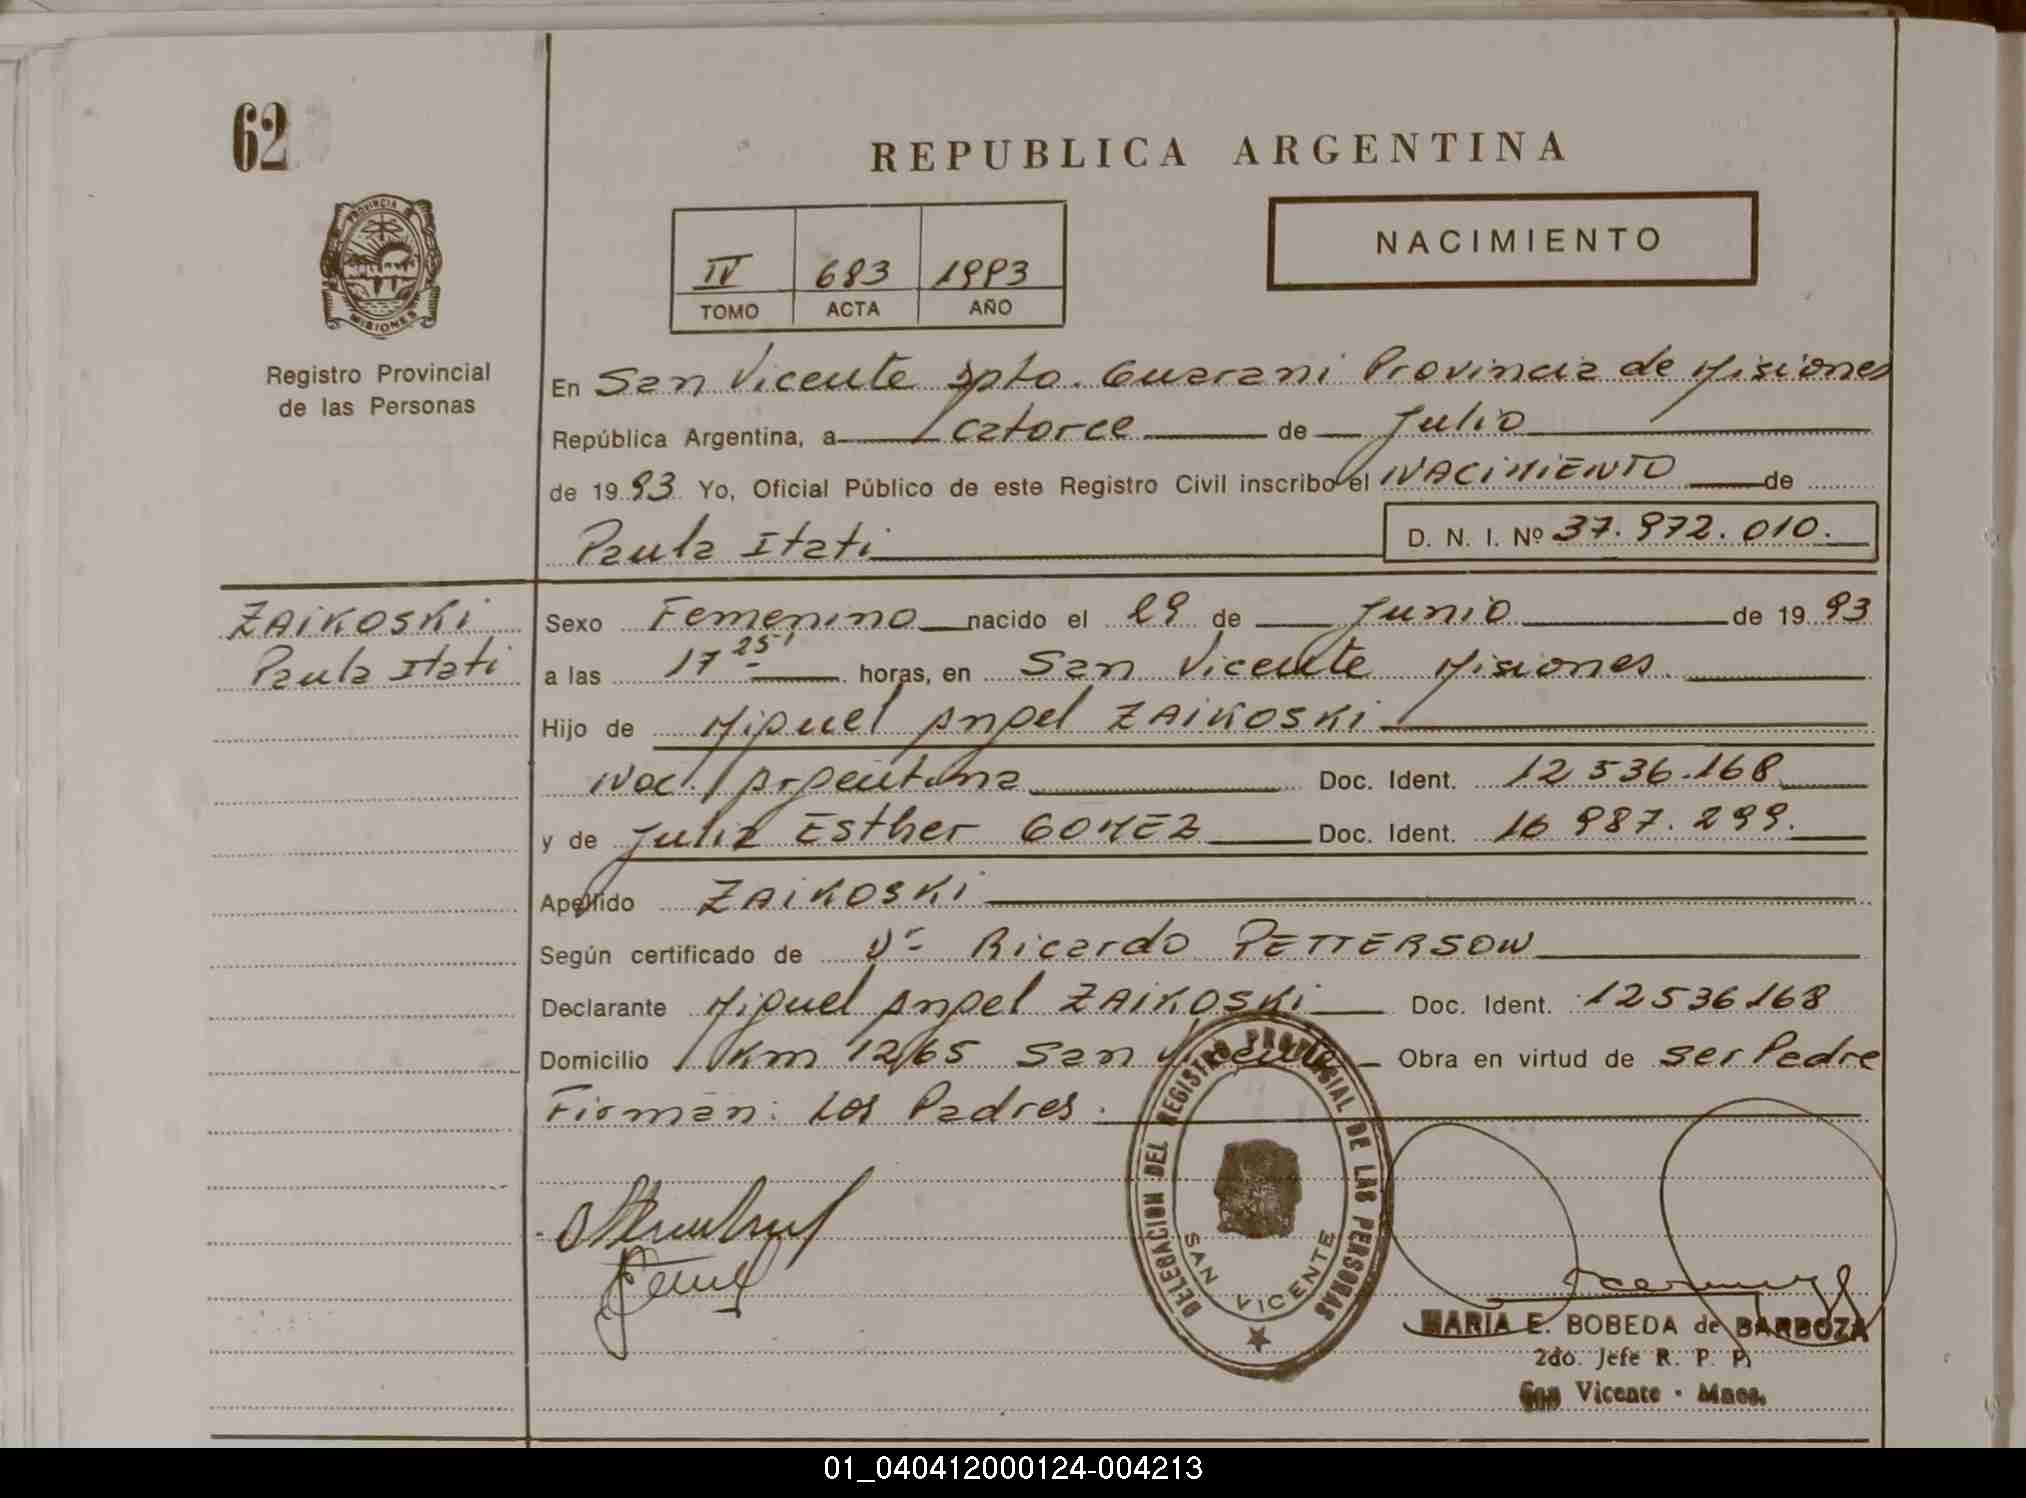 62
REPUBLICA ARGENTINA
PROVINCIA DE
MISIONES
Registro Provincial
de las Personas
IV 683 1993
TOMO ACTA AÑO
NACIMIENTO
En San Vicente Dpto. Guarani Provincia de Misiones
República Argentina, a catorce de Julio
de 1993 Yo, Oficial Público de este Registro Civil inscribo el NACIMIENTO de
Paula Itati D. N. I. Nº 37.972.010.
ZAIKOSKI
Paula Itati
Sexo Femenino nacido el 29 de Junio de 1993
a las 17 25' horas, en San Vicente Misiones.
Hijo de Miguel Angel ZAIKOSKI
Nac. Argentina Doc. Ident. 12 536.168
y de Julia Esther GOMEZ Doc. Ident. 16 987.299.
Apellido ZAIKOSKI
Según certificado de Dr Ricardo PETTERSON
Declarante Miguel Angel ZAIKOSKI Doc. Ident. 12536168
Domicilio Km 1265 San Vicente Obra en virtud de ser Padre
Firman: Los Padres.
DELEGACION DEL REGISTRO PROVINSIAL DE LAS PERSONAS
SAN VICENTE
MARIA E. BOBEDA de BARBOZA
2do. Jefe R. P. P.
San Vicente - Mnes.
01_040412000124-004213